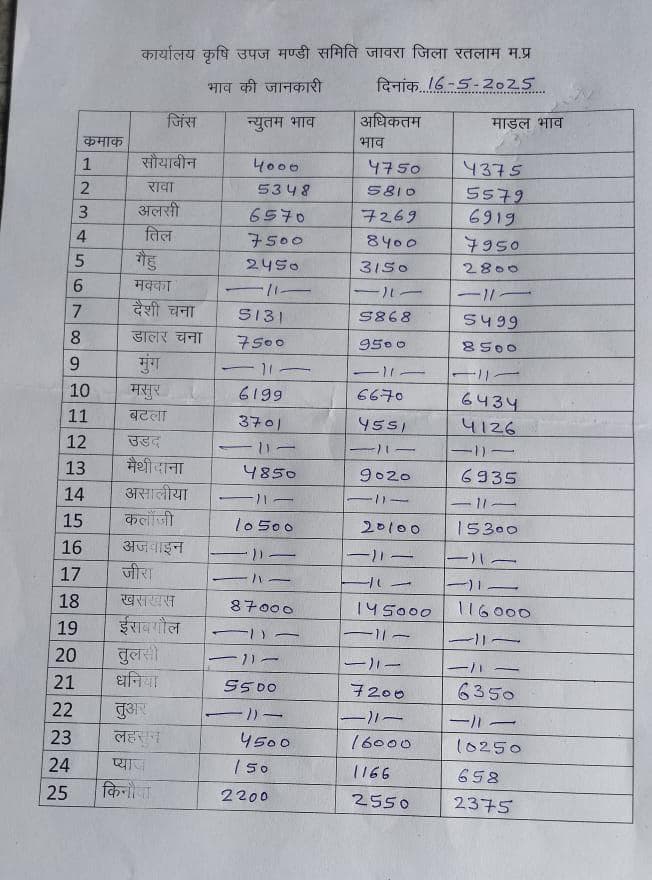 कार्यालय कृषि उपज मण्डी समिति जावरा जिला रतलाम म.प्र
भाव की जानकारी दिनांक..16-5-2025...
कमाक जिंस न्युतम भाव अधिकतम भाव माडल भाव
1 सौयाबीन 4000 4750 4375
2 रावा 5348 5810 5579
3 अलसी 6570 7269 6919
4 तिल 7500 8400 7950
5 गैहु 2450 3150 2800
6 मक्का —11— —11— —11—
7 दैशी चना 5131 5868 5499
8 डालर चना 7500 9500 8500
9 मुंग —11— —11— —11—
10 मसुर 6199 6670 6434
11 बटला 3701 4551 4126
12 उडद —11— —11— —11—
13 मैथीदाना 4850 9020 6935
14 असालीया —11— —11— —11—
15 कलौंजी 10500 20100 15300
16 अजवाइन —11— —11— —11—
17 जीरा —11— —11— —11—
18 खसखस 87000 145000 116000
19 ईसबगौल —11— —11— —11—
20 तुलसी —11— —11— —11—
21 धनिया 5500 7200 6350
22 तुअर —11— —11— —11—
23 लहसुन 4500 16000 10250
24 प्याज 150 1166 658
25 किनौवा 2200 2550 2375